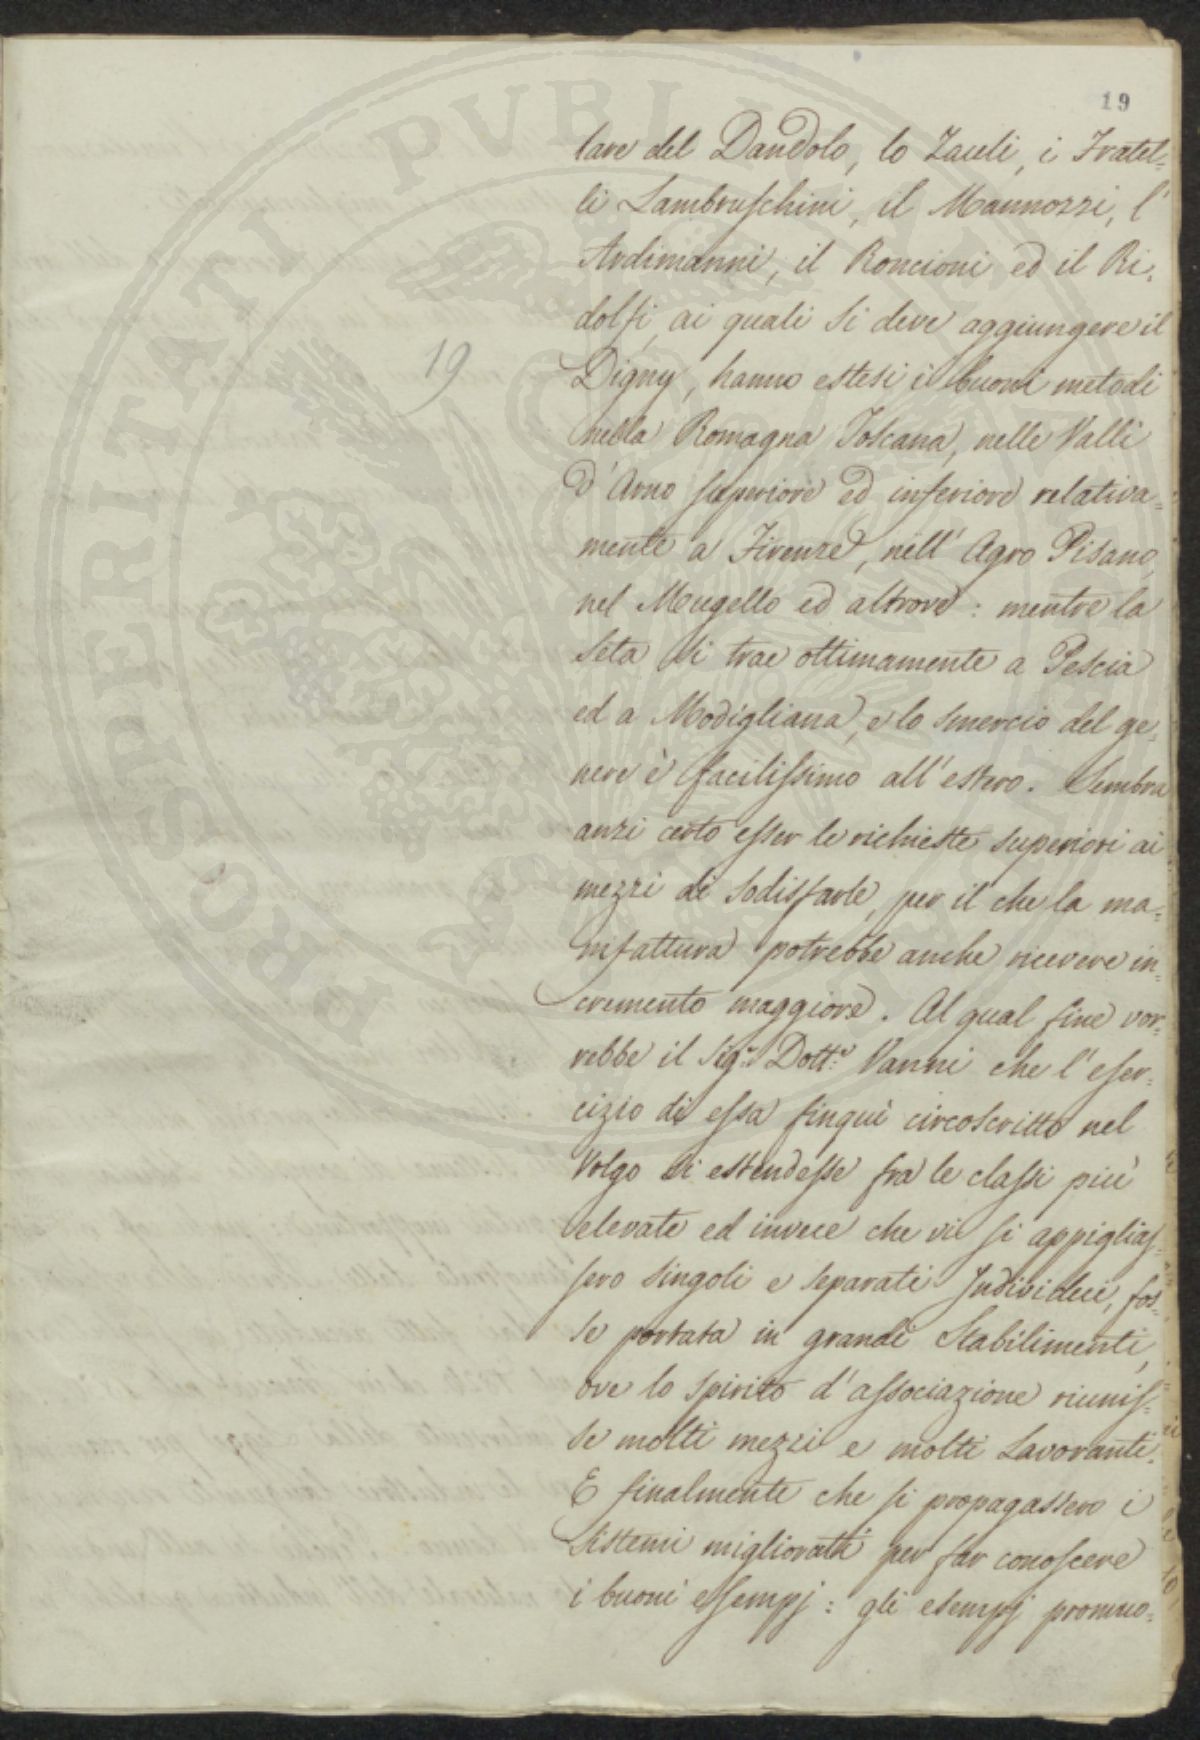 19
lare del Dandolo, lo Zauli, i Fratel-
li Lambruschini, il Mannozzi, l'
Ardimanni, il Roncioni ed il Ri-
dolfi, ai quali si deve aggiungere il
Digny, hanno estesi i buoni metodi
nella Romagna Toscana, nelle Valli
d'Arno superiore ed inferiore relativa-
mente a Firenze, nell' Agro Pisano,
nel Mugello ed altrove: mentre la
seta si trae ottimamente a Pescia
ed a Modigliana, e lo smercio del ge-
nere è facilissimo all'estero. Sembra
anzi certo esser le richieste superiori ai
mezzi di sodisfarle, per il che la ma-
nifattura potrebbe anche ricevere in-
cremento maggiore. Al qual fine vor-
rebbe il Sig.r Dott.e Vanni che l'eser-
cizio di essa finquì circoscritto nel
Volgo si estendesse fra le classi più
elevate ed invece che vi si appiglias-
sero singoli e separati Individui, fos-
se portata in grandi Stabilimenti,
ove lo spirito d'associazione riunis-
se molti mezzi e molti Lavoranti.
E finalmente che si propagassero i
sistemi migliorati per far conoscere
i buoni essempj: gli esempj promuo-
19
PROSPERITATI PVBLICAE